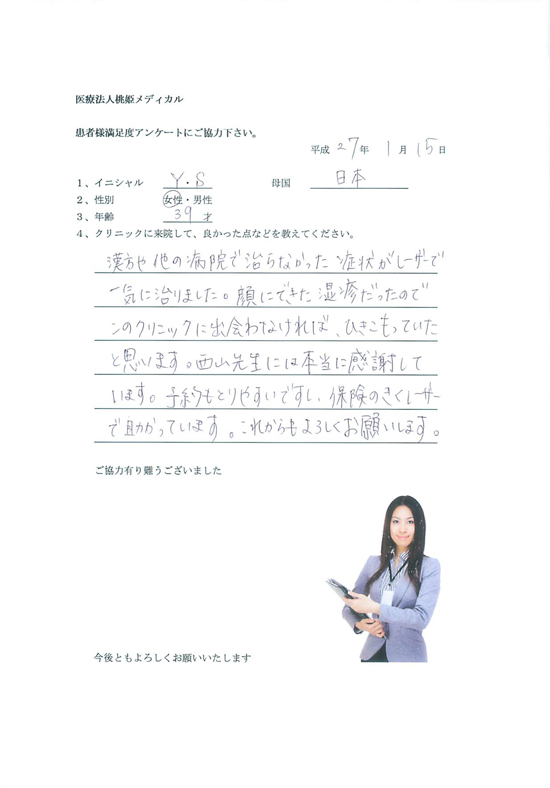 医療法人桃姫メディカル
患者様満足度アンケートにご協力下さい。
平成 27年 1月 15日
1、イニシャル Y・S 母国 日本
2、性別 女性・男性
3、年齢 39才
4、クリニックに来院して、良かった点などを教えてください。
漢方や他の病院で治らなかった症状がレーザーで
一気に治りました。顔にできた湿疹だったので
このクリニックに出会わなければ、ひきこもっていた
と思います。西山先生には本当に感謝して
います。予約もとりやすいですし、保険のきくレーザー
で助かっています。これからもよろしくお願いします。
ご協力有り難うございました
今後ともよろしくお願いいたします